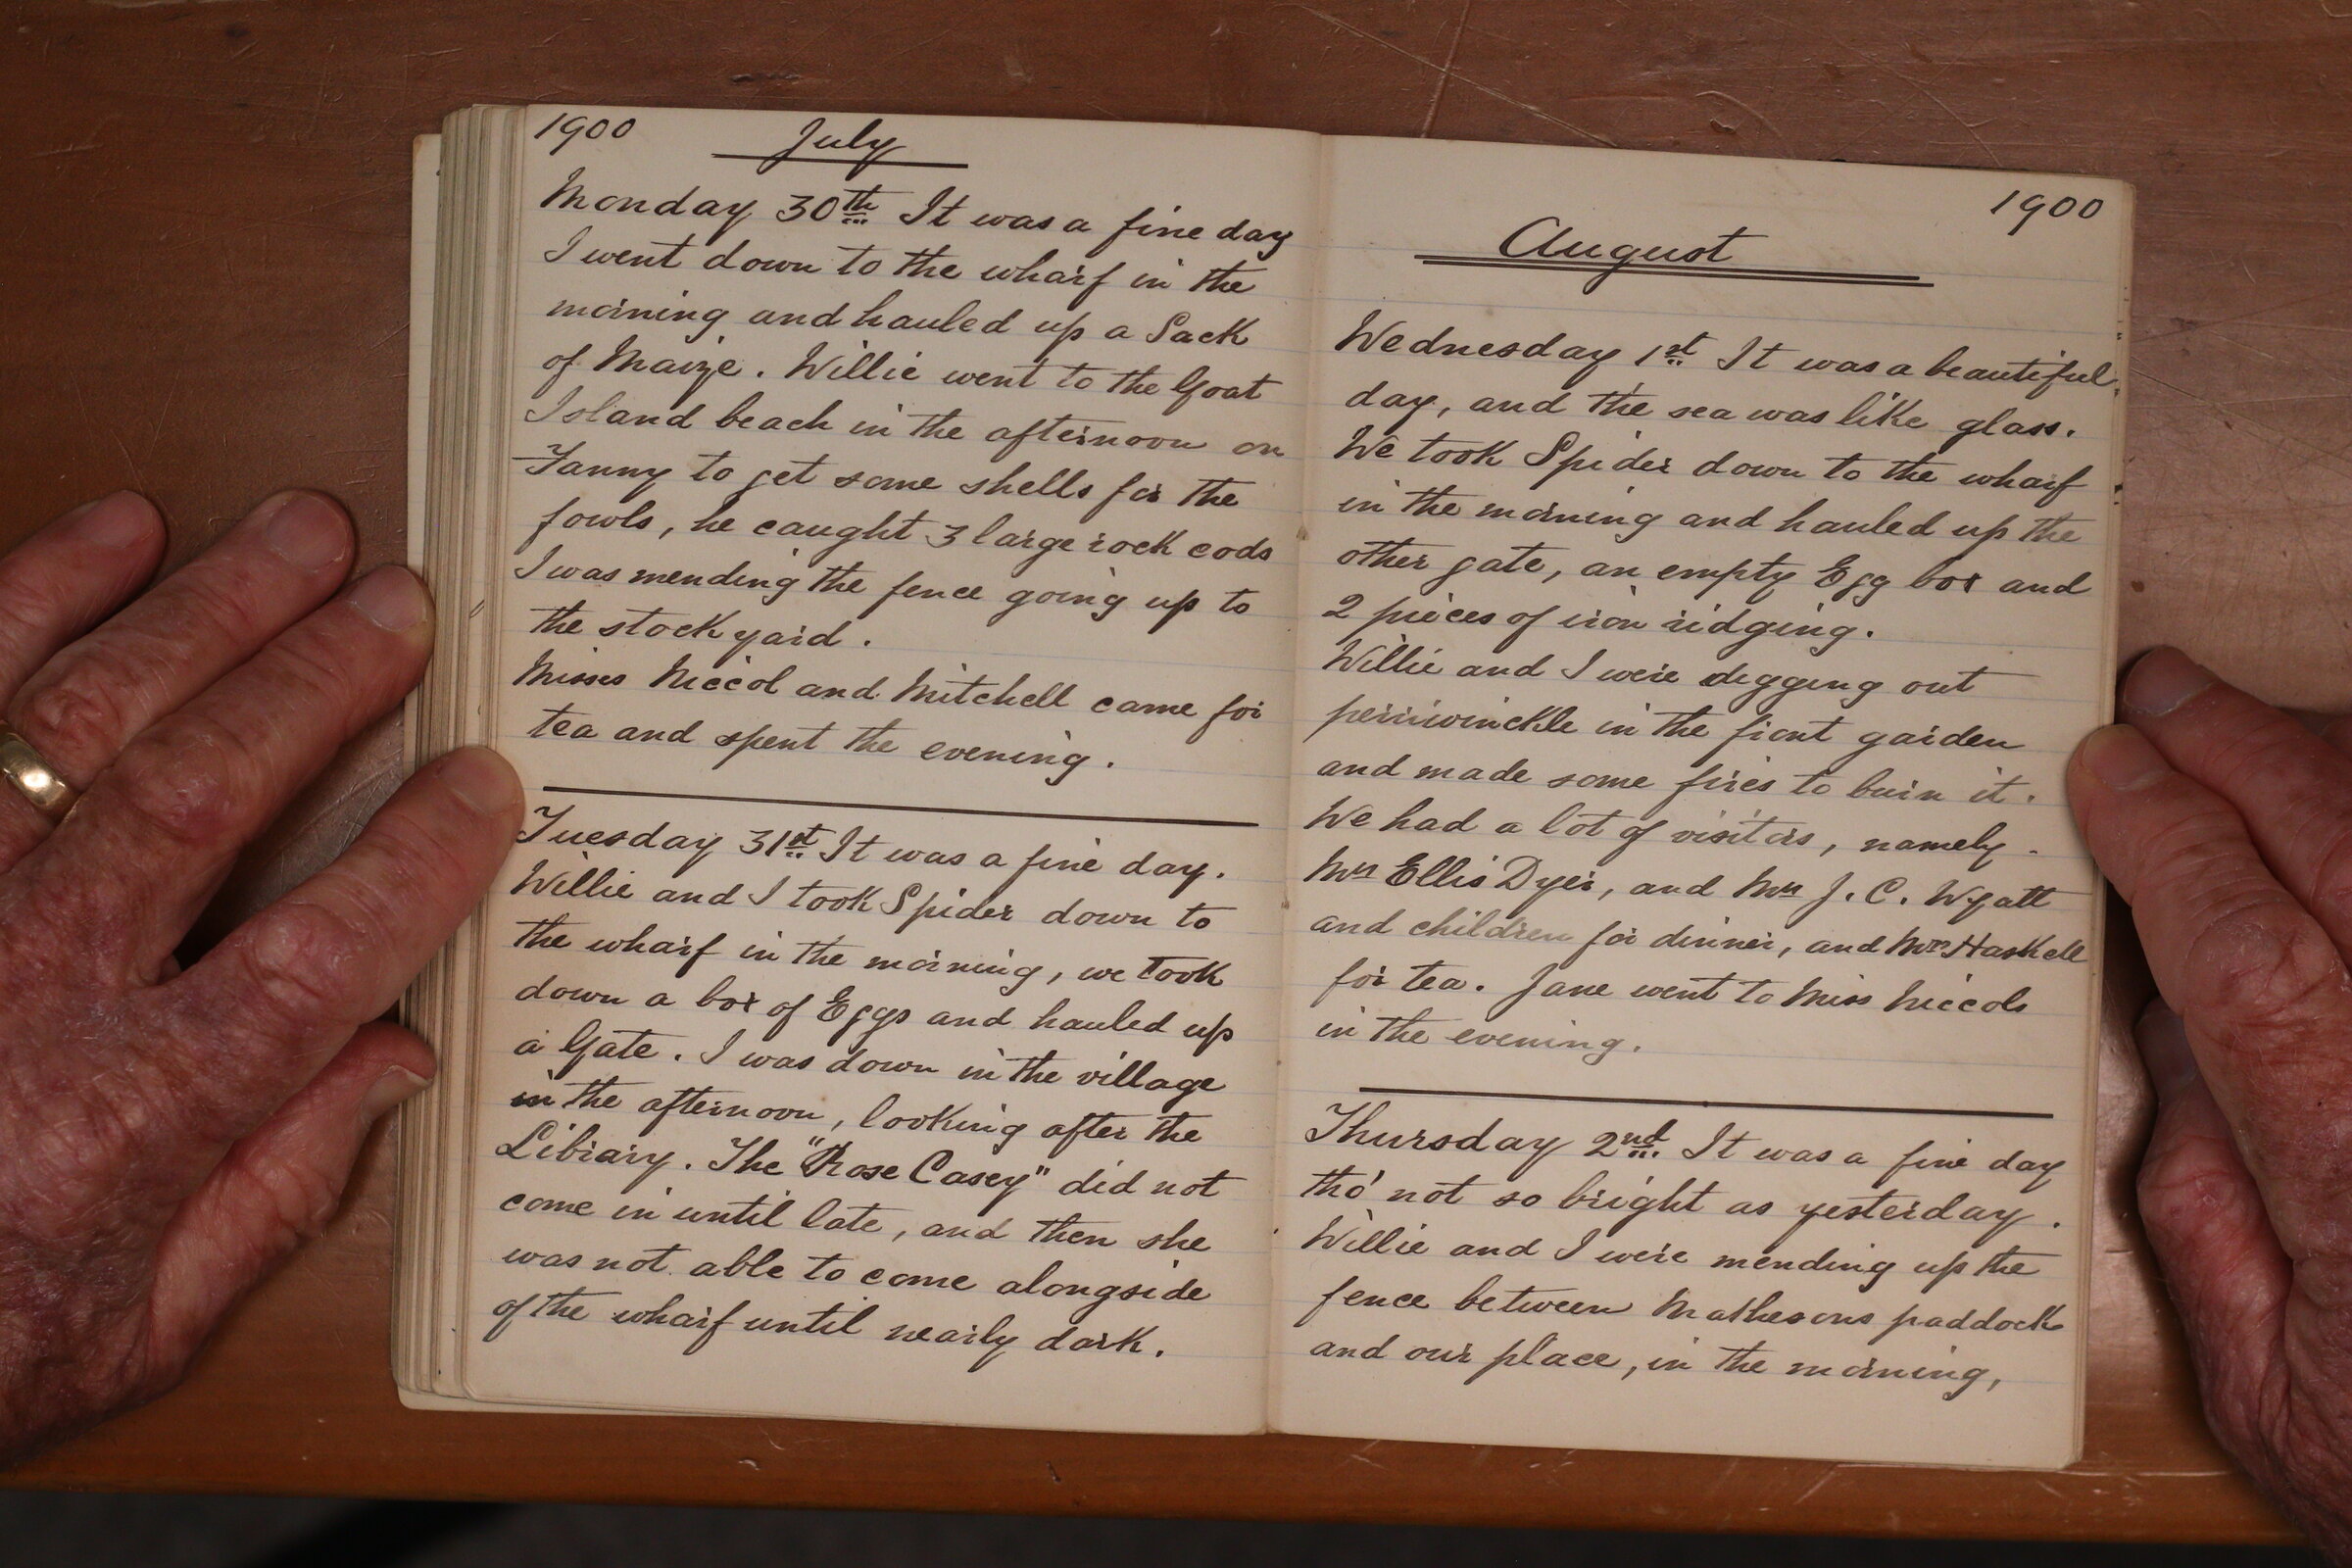 1900 July
Monday 30th It was a fine day
I went down to the wharf in the
morning and hauled up a Sack
of Maize. Willie went to the Goat
Island beach in the afternoon on
Fanny to get some shells for the
fowls, he caught 3 large rock cods
I was mending the fence going up to
the stock yard.
Misses Niccol and Mitchell came for
tea and spent the evening.
Tuesday 31st It was a fine day.
Willie and I took Spider down to
the wharf in the morning, we took
down a box of Eggs and hauled up
a Gate. I was down in the village
in the afternoon, looking after the
Library. The "Rose Casey" did not
come in until late, and then she
was not able to come alongside
of the wharf until nearly dark.
1900
August
Wednesday 1st It was a beautiful
day, and the sea was like glass.
We took Spider down to the wharf
in the morning and hauled up the
other gate, an empty Egg box and
2 pieces of iron ridging.
Willie and I were digging out
perriwinckle in the front garden
and made some fires to burn it.
We had a lot of visitors, namely -
Mrs Ellis Dyer, and Mrs J. C. Wyatt
and children for dinner, and Mrs Haskell
for tea. Jane went to Miss Niccols
in the evening.
Thursday 2nd It was a fine day
tho' not so bright as yesterday.
Willie and I were mending up the
fence between Mathesons paddock
and our place, in the morning,